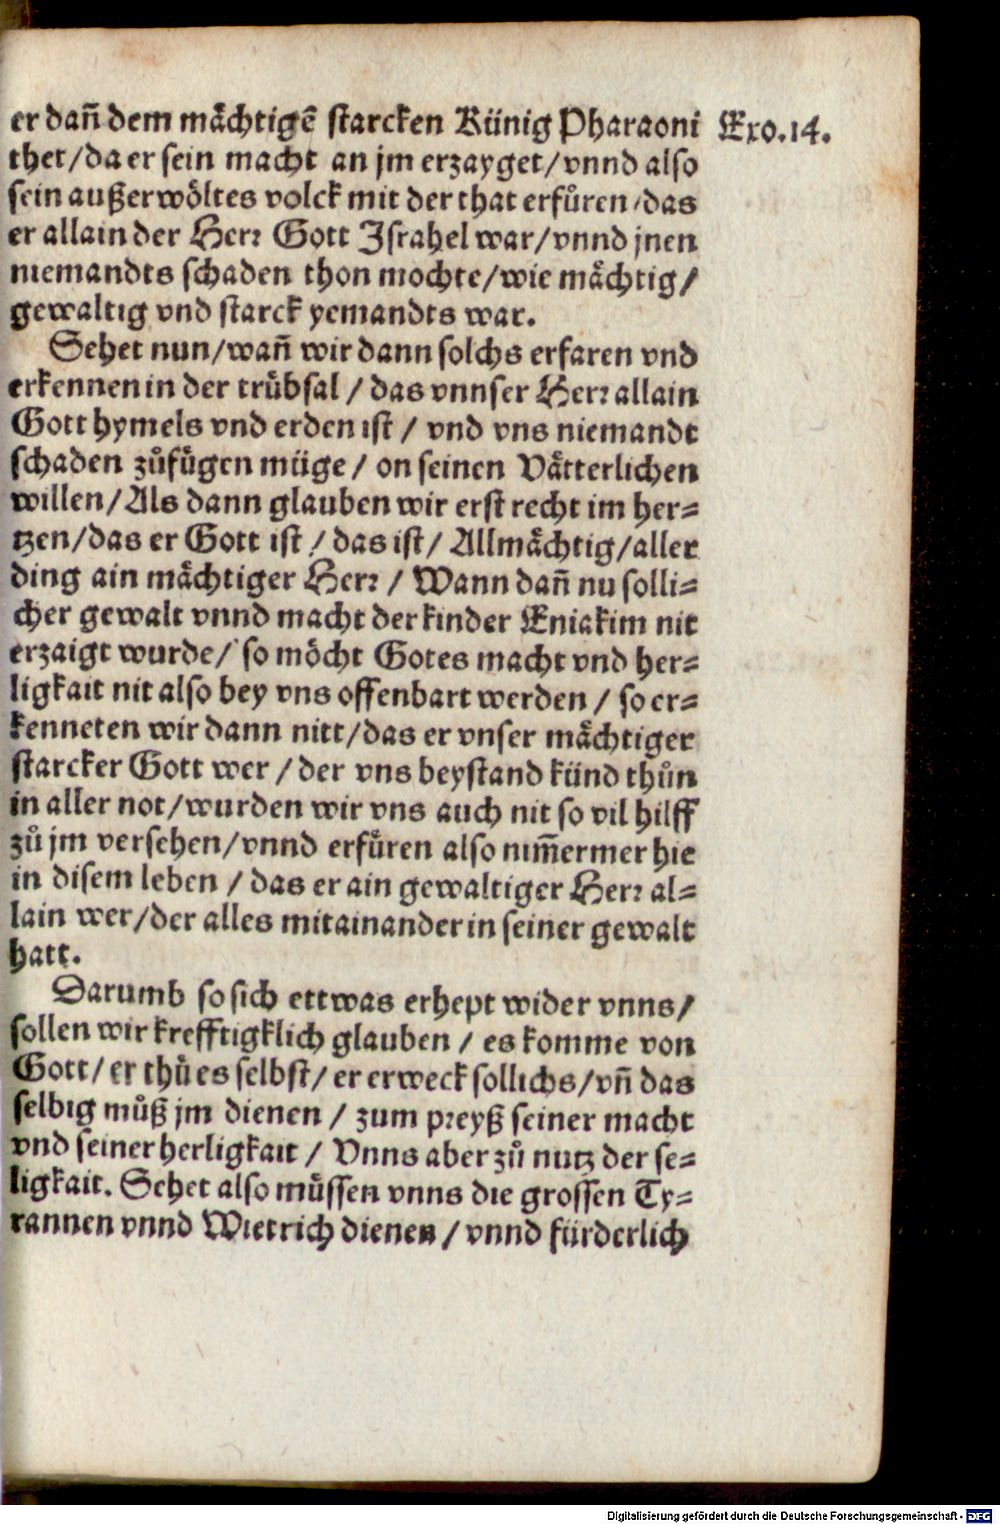 er dañ dem mächtigē starcken Künig Pharaoni
Exo.14.
thet/da er sein macht an jm erzayget/vnnd also
sein außerwöltes volck mit der that erfüren/das
er allain der Herr Gott Israhel war/vnnd jnen
niemandts schaden thon mochte/wie mächtig/
gewaltig vnd starck yemandts war.
Sehet nun/wañ wir dann solchs erfaren vnd
erkennen in der trübsal / das vnnser Herr allain
Gott hymels vnd erden ist / vnd vns niemandt
schaden zůfügen müge / on seinen Vätterlichen
willen/Als dann glauben wir erst recht im her=
tzen/das er Gott ist / das ist/ Allmächtig/aller
ding ain mächtiger Herr / Wann dañ nu solli=
cher gewalt vnnd macht der kinder Eniakim nit
erzaigt wurde/ so möcht Gotes macht vnd her=
ligkait nit also bey vns offenbart werden / so er=
kenneten wir dann nitt/das er vnser mächtiger
starcker Gott wer / der vns beystand künd thůn
in aller not/wurden wir vns auch nit so vil hilff
zů jm versehen/vnnd erfüren also nim̃ermer hie
in disem leben / das er ain gewaltiger Herr al=
lain wer/der alles mitainander in seiner gewalt
hatt.
Darumb so sich ettwas erhept wider vnns/
sollen wir krefftigklich glauben / es komme von
Gott/ er thů es selbst/ er erweck sollichs/vñ das
selbig můß jm dienen / zum preyß seiner macht
vnd seiner herligkait / Vnns aber zů nutz der se=
ligkait. Sehet also müssen vnns die grossen Ty=
rannen vnnd Wietrich dienen / vnnd fürderlich
Digitalisierung gefördert durch die Deutsche Forschungsgemeinschaft - DFG